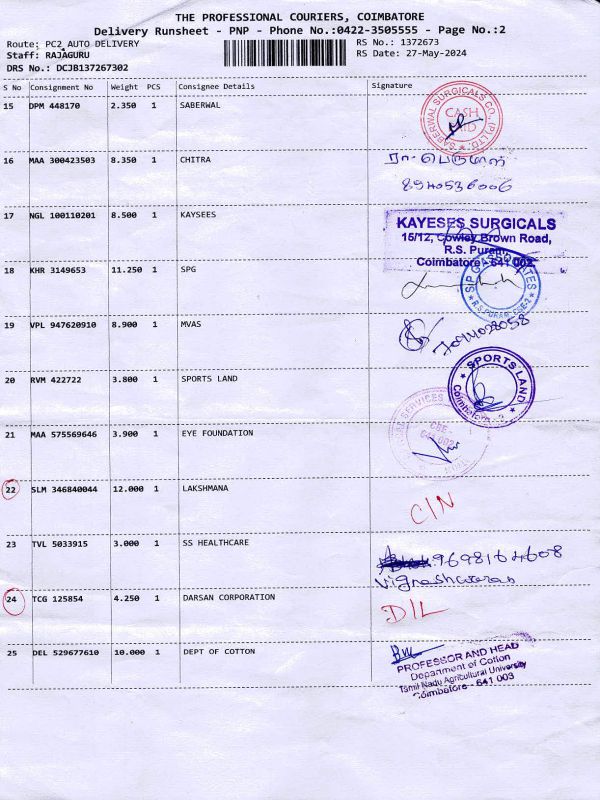 THE PROFESSIONAL COURIERS, COIMBATORE
Delivery Runsheet - PNP - Phone No.:0422-3505555 - Page No.:2
Route: PC2 AUTO DELIVERY RS No.: 1372673
Staff: RAJAGURU RS Date: 27-May-2024
DRS No.: DCJB137267302
S No Consignment No Weight PCS Consignee Details Signature
15 DPM 448170 2.350 1 SABERWAL
SABERWAL SURGICALS CO. (P) LTD.
CASH PAID
16 MAA 300423503 8.350 1 CHITRA
ரா. பெருமாள்
8940536006
17 NGL 100110201 8.500 1 KAYSEES
KAYESES SURGICALS
15/12, Cowley Brown Road,
R.S. Puram,
Coimbatore - 641 002.
18 KHR 3149653 11.250 1 SPG
S P G ASSOCIATES
R.S.PURAM, CBE-2
19 VPL 947620910 8.900 1 MVAS
20 RVM 422722 3.800 1 SPORTS LAND
SPORTS LAND
Coimbatore - 2
21 MAA 575569646 3.900 1 EYE FOUNDATION
SERVICES
CBE-
641 002
22 SLM 346840044 12.000 1 LAKSHMANA
C/N
23 TVL 5033915 3.000 1 SS HEALTHCARE
9698164608
Vignashwaran
24 TCG 125854 4.250 1 DARSAN CORPORATION
D/L
25 DEL 529677610 10.000 1 DEPT OF COTTON
PROFESSOR AND HEAD
Department of Cotton
Tamil Nadu Agricultural University
Coimbatore - 641 003